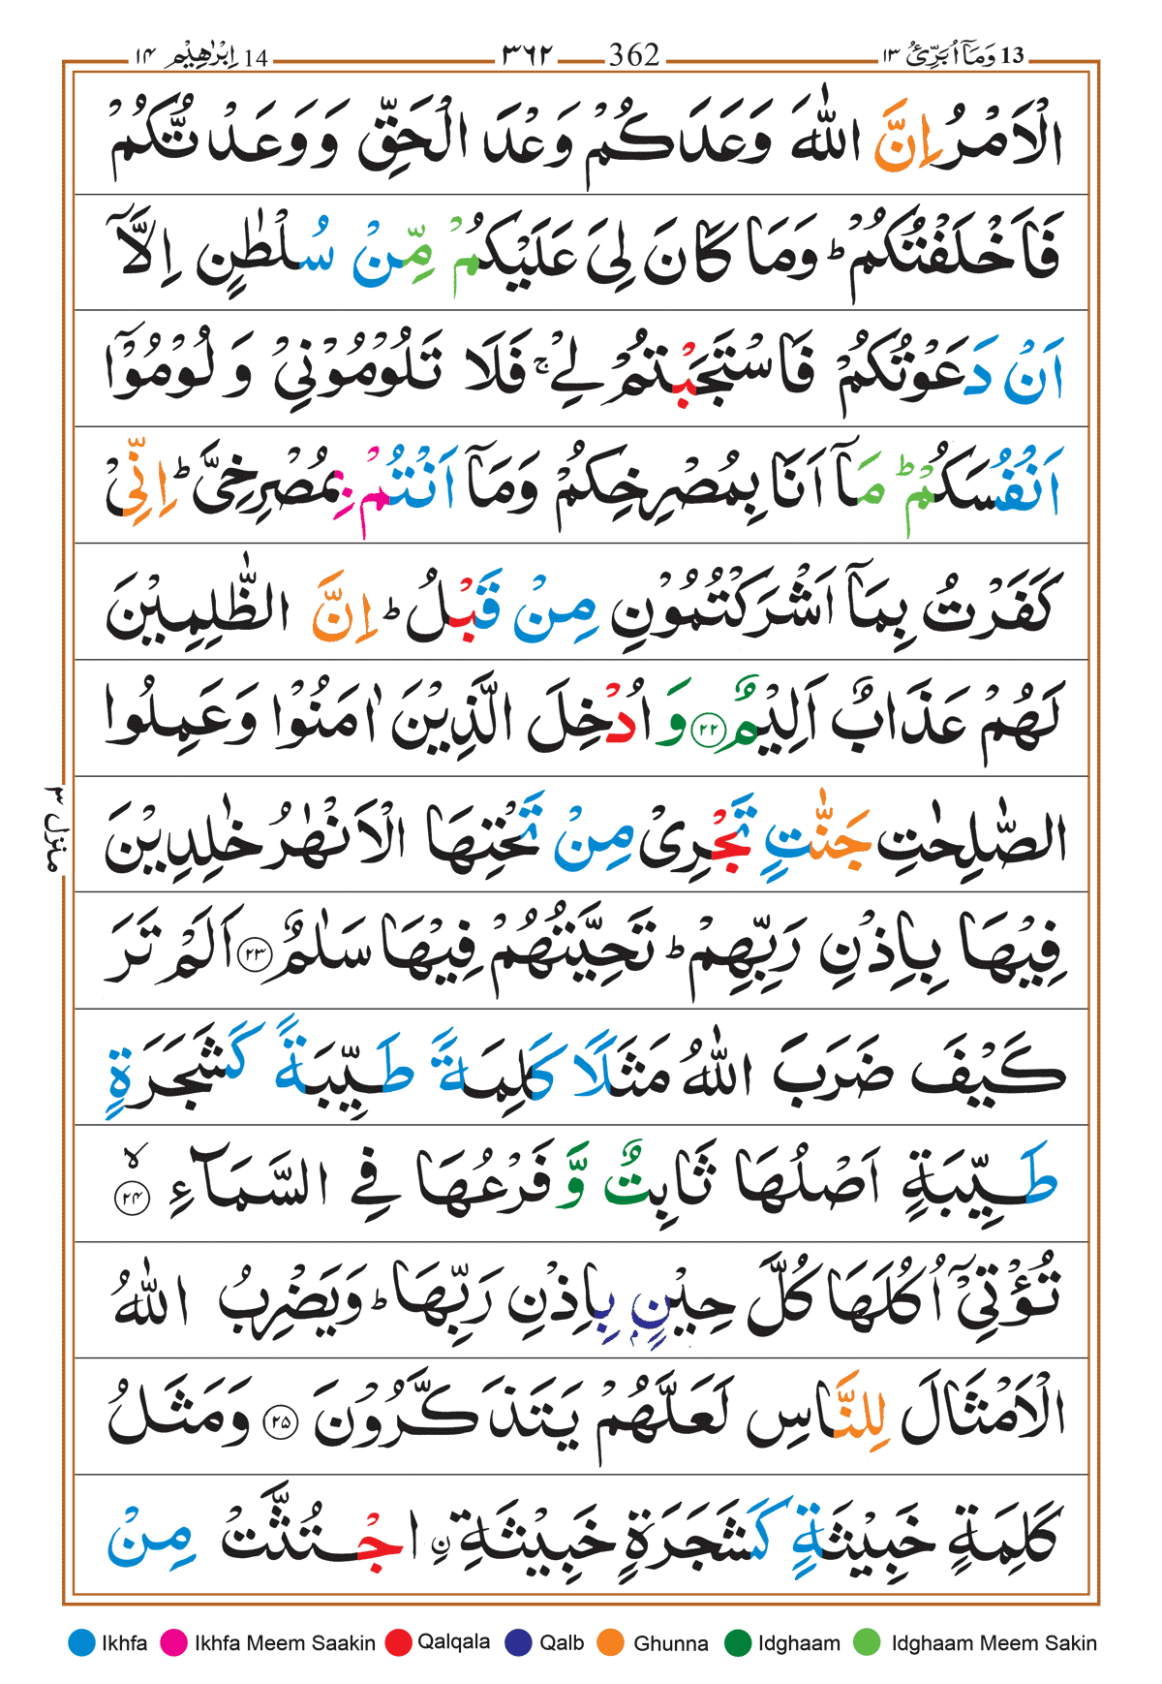 13 وَمَآ اُبَرِّئُ ۱۳ 362 ۳۶۲ 14 اِبْرٰهِيْم ۱۴
الْاَمْرُ اِنَّ اللّٰهَ وَعَدَكُمْ وَعْدَ الْحَقِّ وَوَعَدْتُّكُمْ
فَاَخْلَفْتُكُمْ ؕ وَمَا كَانَ لِىَ عَلَيْكُمْ مِّنْ سُلْطٰنٍ اِلَّآ
اَنْ دَعَوْتُكُمْ فَاسْتَجَبْتُمْ لِىْ ۚ فَلَا تَلُوْمُوْنِىْ وَلُوْمُوْٓا
اَنْفُسَكُمْ ؕ مَآ اَنَا بِمُصْرِخِكُمْ وَمَآ اَنْتُمْ بِمُصْرِخِىَّ ؕ اِنِّىْ
كَفَرْتُ بِمَآ اَشْرَكْتُمُوْنِ مِنْ قَبْلُ ؕ اِنَّ الظّٰلِمِيْنَ
لَهُمْ عَذَابٌ اَلِيْمٌ ۲۲ وَاُدْخِلَ الَّذِيْنَ اٰمَنُوْا وَعَمِلُوا
الصّٰلِحٰتِ جَنّٰتٍ تَجْرِىْ مِنْ تَحْتِهَا الْاَنْهٰرُ خٰلِدِيْنَ
فِيْهَا بِاِذْنِ رَبِّهِمْ ؕ تَحِيَّتُهُمْ فِيْهَا سَلٰمٌ ۲۳ اَلَمْ تَرَ
كَيْفَ ضَرَبَ اللّٰهُ مَثَلًا كَلِمَةً طَيِّبَةً كَشَجَرَةٍ
طَيِّبَةٍ اَصْلُهَا ثَابِتٌ وَّفَرْعُهَا فِى السَّمَآءِ ۙ ۲۴
تُؤْتِىْٓ اُكُلَهَا كُلَّ حِيْنٍۢ بِاِذْنِ رَبِّهَا ؕ وَيَضْرِبُ اللّٰهُ
الْاَمْثَالَ لِلنَّاسِ لَعَلَّهُمْ يَتَذَكَّرُوْنَ ۲۵ وَمَثَلُ
كَلِمَةٍ خَبِيْثَةٍ كَشَجَرَةٍ خَبِيْثَةِ ۨ اجْتُثَّتْ مِنْ
منزل ۳
Ikhfa Ikhfa Meem Saakin Qalqala Qalb Ghunna Idghaam Idghaam Meem Sakin